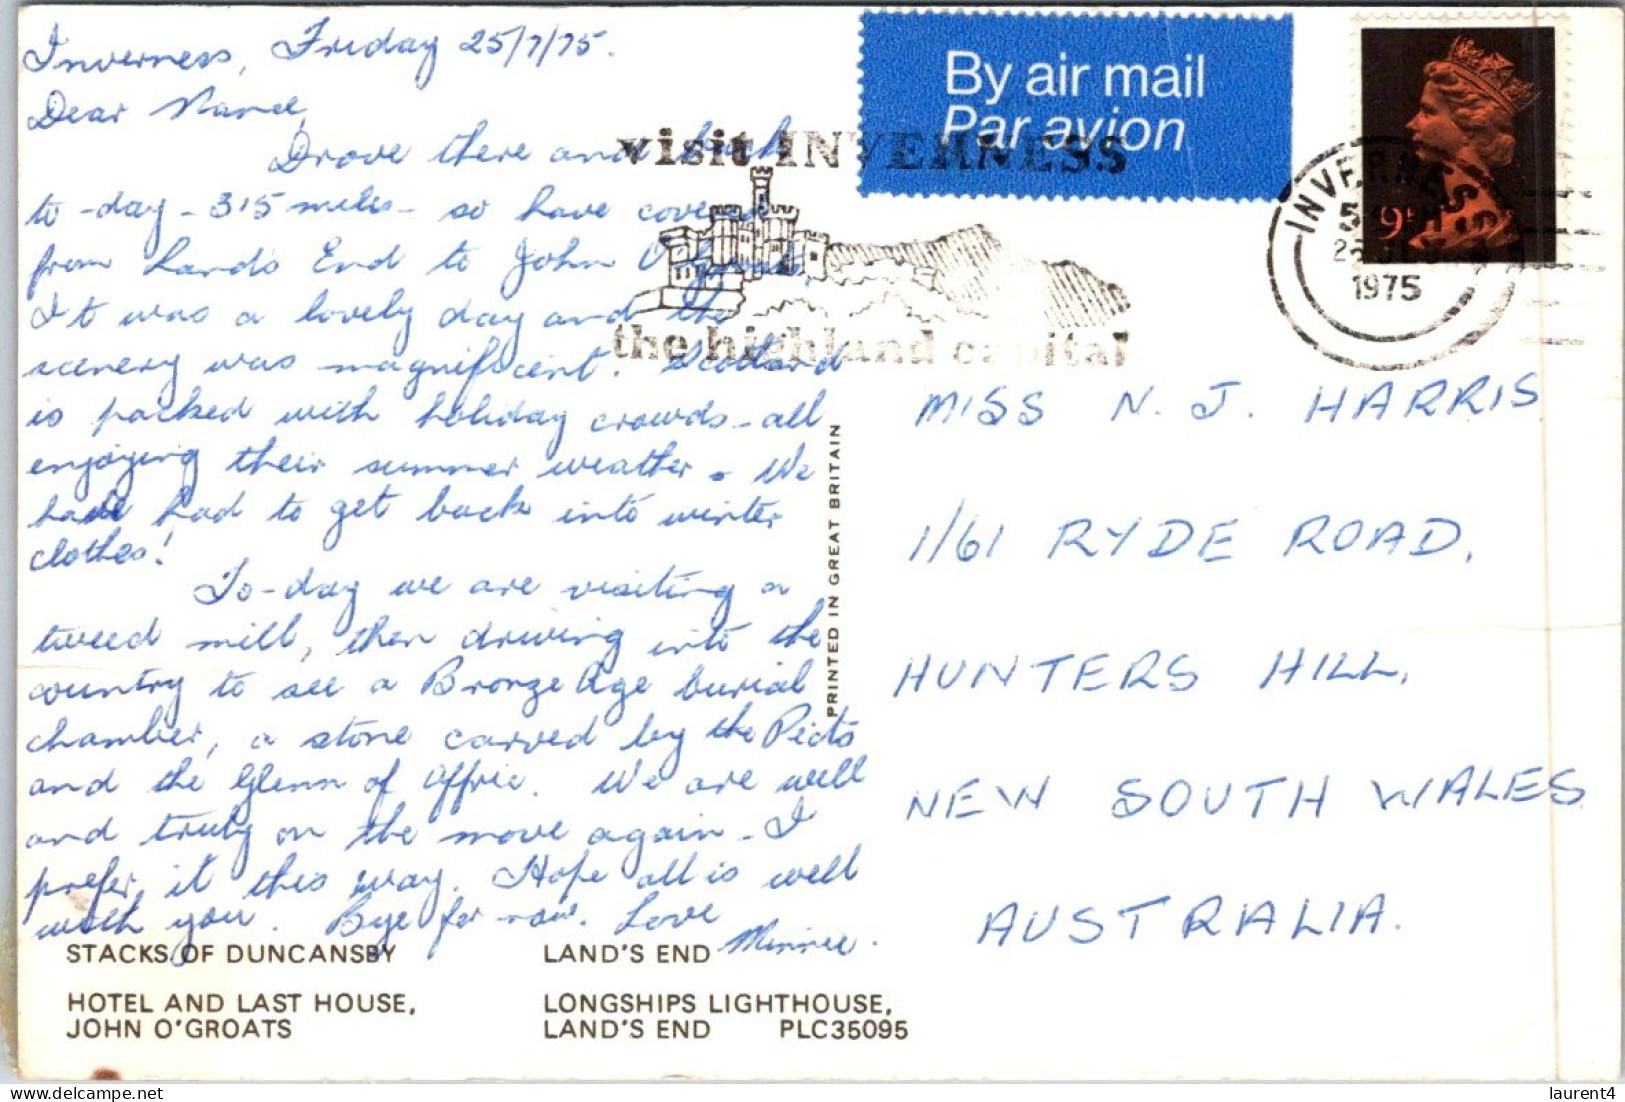 Inverness, Friday 25/7/75.
Dear
Drove there and back
to-day - 315 miles - so have covered
from Lands End to John O'Groats,
It was a lovely day and the
scenery was magnificent. Scotland
is packed with holiday crowds - all
enjoying their summer weather. We
have had to get back into winter
clothes!
To-day we are visiting a
tweed mill, then driving into the
country to see a Bronze Age burial
chamber, a stone carved by the Picts
and the Glenn of Affric. We are well
and truly on the move again - I
prefer it this way. Hope all is well
with you. Bye for now. Love
Minnie.
By air mail
Par avion
visit INVERNESS
the highland capital
INVERNESS
1975
9P
MISS N. J. HARRIS
1/61 RYDE ROAD,
HUNTERS HILL,
NEW SOUTH WALES
AUSTRALIA.
PRINTED IN GREAT BRITAIN
STACKS OF DUNCANSBY
HOTEL AND LAST HOUSE,
JOHN O'GROATS
LAND'S END
LONGSHIPS LIGHTHOUSE,
LAND'S END PLC35095
laurent4